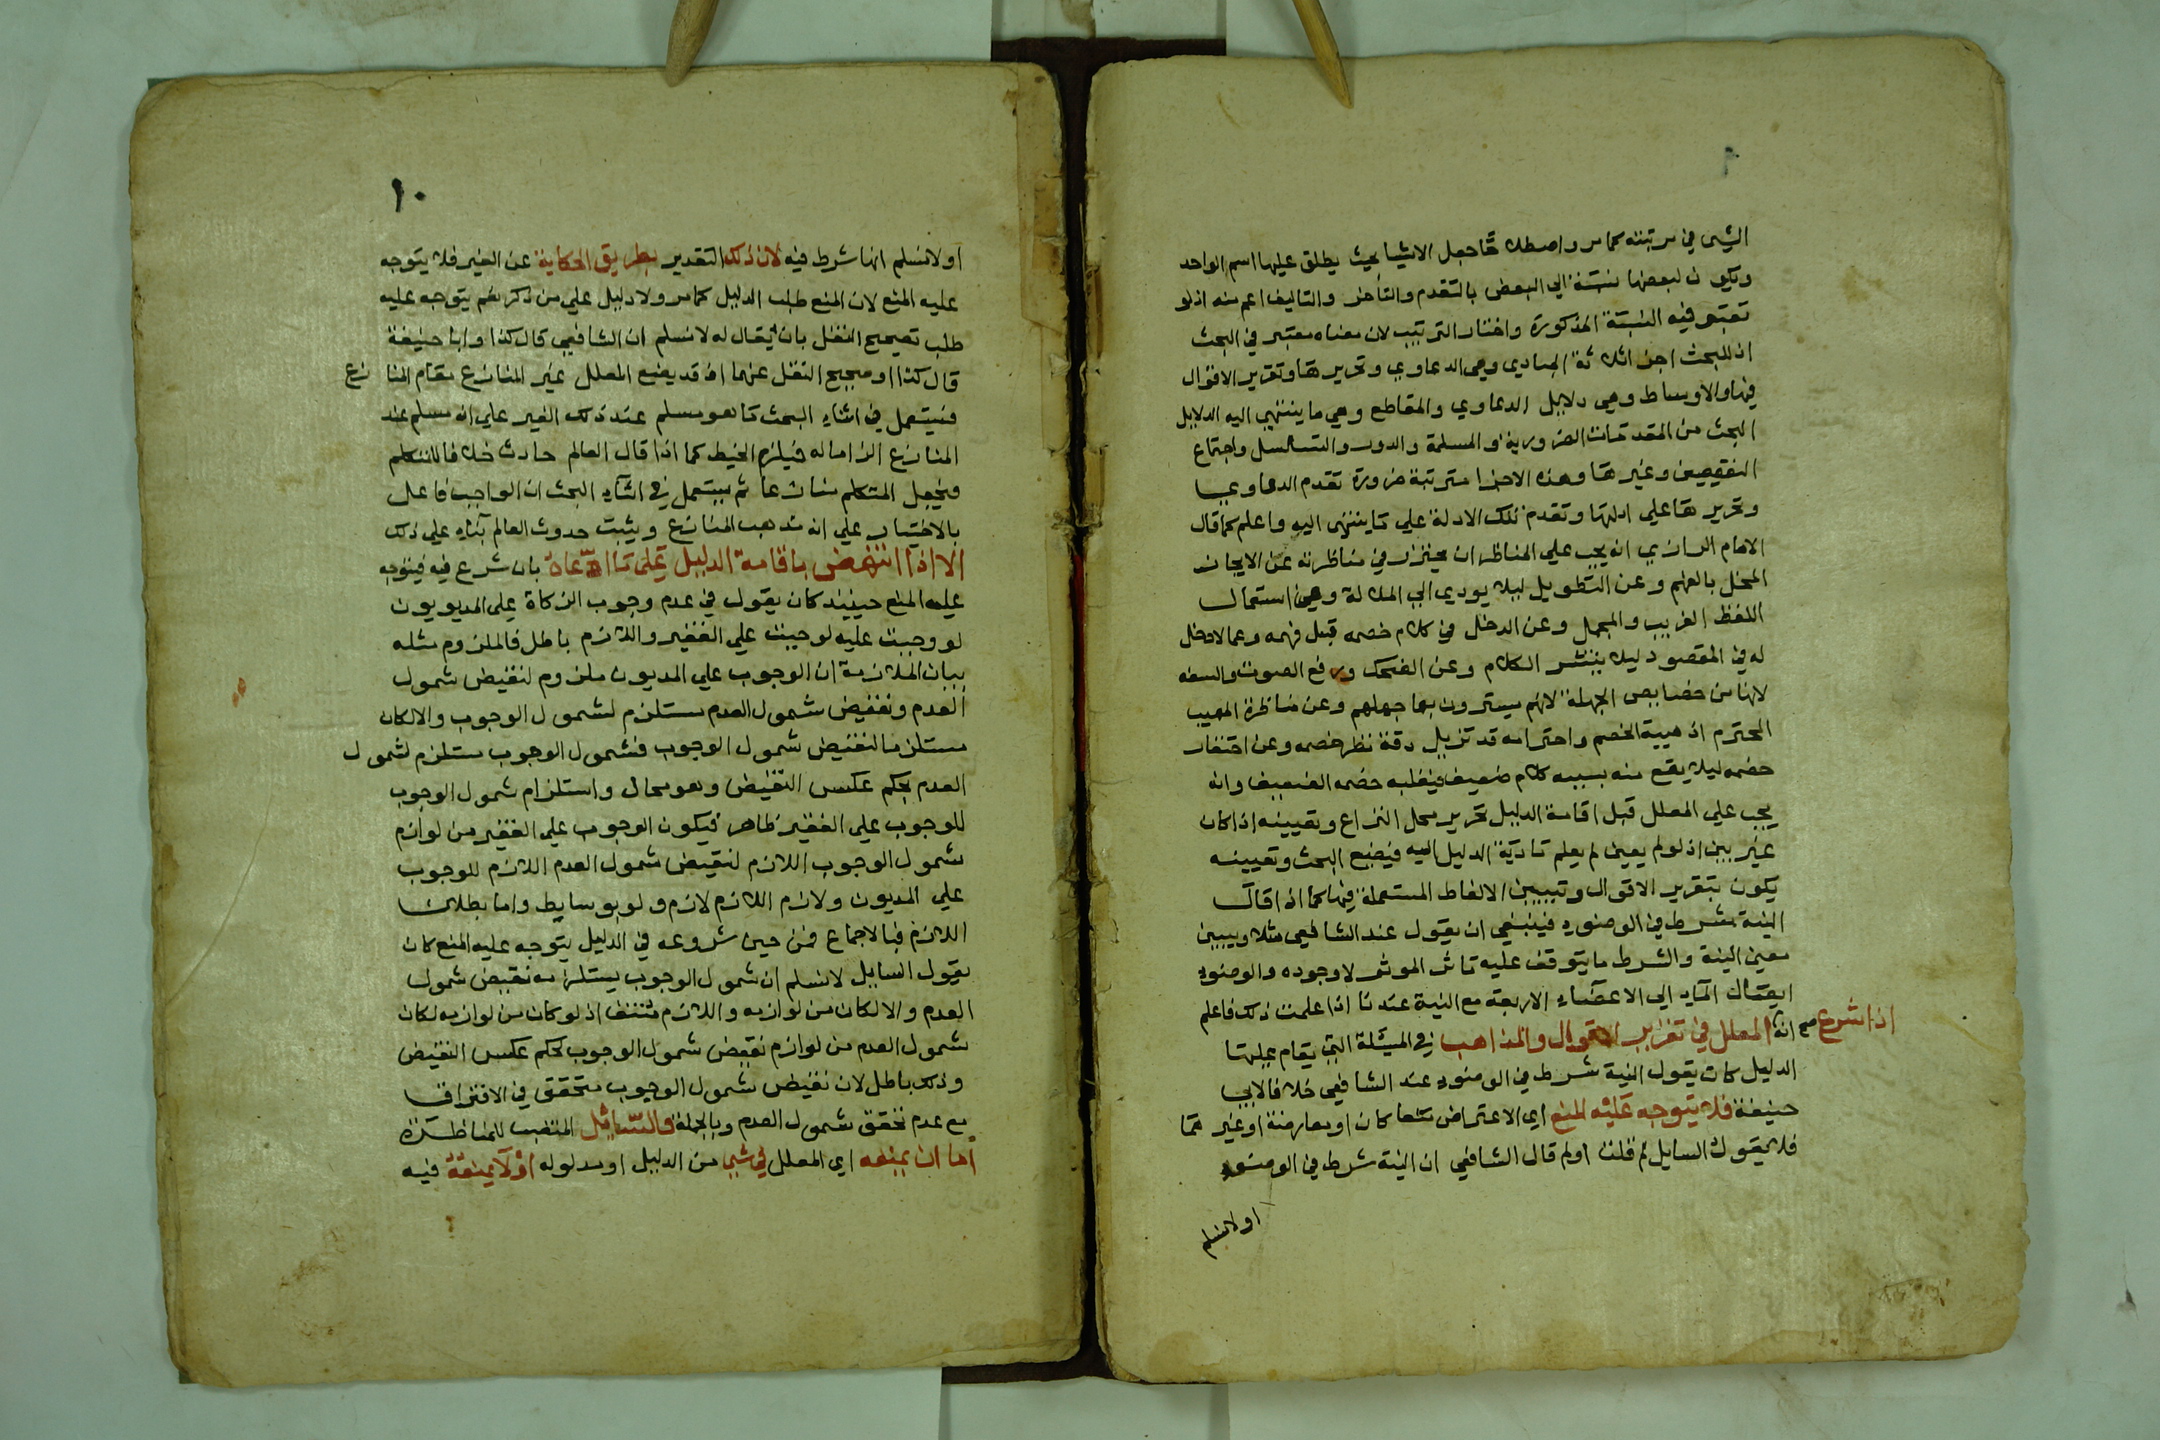 الشي في مرتبته كمامر واصطلاحا جعل الاشيا بحيث يطلق عليها اسم الواحد
ويكون لبعضها نسبة الي البعض بالتقدم والتأخر والتاليف اعم منه اذ لو
تعتبر فيه النسبة المذكورة واختار الترتيب لان معناه معتبر في البحث
اذ للبحث اجزا ثلاثة المبادي وهي الدعاوي وتحريرها وتقرير الاقوال
فيها والاوساط وهي دلايل الدعاوي والمقاطع وهي ما ينتهي اليه الدلايل
البحث من المقدمات الضرورية والمسلمة والدور والتسلسل واجتماع
النقيضين وغيرها وهذه الاجزا مترتبة ضرورة تقدم الدعاوي
وتحريرها علي ادلتها وتقدم تلك الادلة علي ما ينتهي اليه واعلم كما قال
الامام الرازي انه يجب علي المناظر ان يحترز في مناظرته عن الايجاز
المخل بالفهم وعن التطويل ليلا يودي الي الملالة وعن استعمال
اللفظ الغريب والمجمل وعن الدخل في كلام خصمه قبل فهمه وعما لا دخل
له في المقصود ليلا ينتشر الكلام وعن الضحك ورفع الصوت والسفه
لانها من خصايص الجهلة لانهم يسترون بها جهلهم وعن مناظرة المهيب
المحترم اذ هيبة الخصم واحترامه قد تزيل دقة نظر خصمه وعن احتقار
خصمه ليلا يقع منه بسببه كلام ضعيف فيغلبه خصمه الضعيف وانه
يجب علي المعلل قبل اقامة الدليل تحرير محل النزاع وتعيينه اذا كان
غير بين اذ لو لم يعين لم يعلم تادية الدليل اليه فيضيع البحث وتعيينه
يكون بتقرير الاقوال وتبيين الالفاظ المستعملة فيها كما اذا قال
النية شرط في الوضوء فينبغي ان يقول عند الشافعي مثلا ويبين
معين النية والشرط ما يتوقف عليه تاثر الموثر لا وجوده والوضوء
ايصال الماء الي الاعضاء الاربعة مع النية عندنا اذا علمت ذلك فاعلم
انه المعلل في تقرير الاقوال والمذاهب في المسئلة التي يقام عليها
اذا شرع صح
الدليل كان يقول النية شرط في الوضوء عند الشافعي خلافا لابي
حنيفة فلا يتوجه عليه المنع اي الاعتراض منعا كان او معارضة او غيرهما
فلا يقول السايل لم قلت او لم قال الشافعي ان النية شرط في الوضوء
او لا نسلم
١٠
او لا نسلم انها شرط فيه لان ذلك التقدير بطريق الحكاية عن الغير فلا يتوجه
عليه المنع لان المنع طلب الدليل كمامر ولا دليل علي من ذكر نعم يتوجه عليه
طلب تصحيح النقل بان يقال له لا نسلم ان الشافعي قال كذا وابا حنيفة
قال كذا او صحيح النقل عنهما اذ قد يضع المعلل غير المنازع مقام المنازع
فيستعمل في اثناء البحث ما هو مسلم عند ذلك الغير علي انه مسلم عند
المنازع الزاما له فيلزم الخبط كما اذا قال العالم حادث خلافا للمتكلم
فيجعل المتكلم منازعا ثم يستعمل في اثناء البحث ان الواجب فاعل
بالاختيار علي انه مذهب المنازع ويثبت حدوث العالم بناء علي ذلك
الا اذا انتهض باقامة الدليل علي ما ادعاه بان شرع فيه فيتوجه
عليه المنع حينيذ كان يقول في عدم وجوب الزكاة علي المديون
لو وجبت عليه لوجبت علي الفقير واللازم باطل فالملزوم مثله
بيان الملازمة ان الوجوب علي المديون ملزوم لنقيض شمول
العدم ونقيض شمول العدم مستلزم لشمول الوجوب والا لكان
مستلزما لنقيض شمول الوجوب فشمول الوجوب مستلزم لشمول
العدم بحكم عكس النقيض وهو محال واستلزام شمول الوجوب
للوجوب علي الفقير ظاهر فيكون الوجوب علي الفقير من لوازم
شمول الوجوب اللازم لنقيض شمول العدم اللازم للوجوب
علي المديون ولازم اللازم لازم ولو بوسايط واما بطلان
اللازم فبالاجماع فمن حين شروعه في الدليل يتوجه عليه المنع كان
يقول السايل لا نسلم ان شمول الوجوب يستلزمه نقيض شمول
العدم والا لكان من لوازمه واللازم منتف اذ لو كان من لوازمه لكان
شمول العدم من لوازم نقيض شمول الوجوب بحكم عكس النقيض
وذلك باطل لان نقيض شمول الوجوب متحقق في الافتراق
مع عدم تحقق شمول العدم وبالجملة فالسايل المنتصب للمناظرة
اما ان يمنعه اي المعلل في شي من الدليل او مدلوله او لا يمنعه فيه